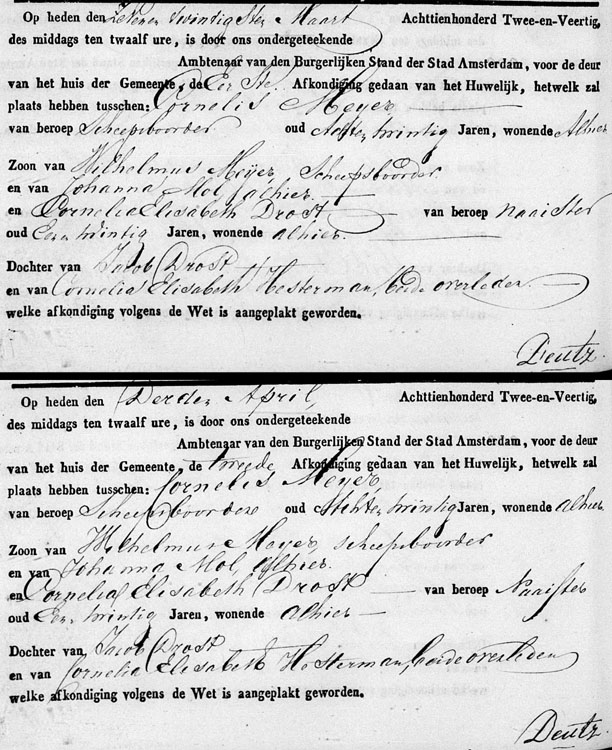 Op heden den Zeven twintigsten Maart Achttienhonderd Twee-en-Veertig,
des middags ten twaalf ure, is door ons ondergeteekende
Ambtenaar van den Burgerlijken Stand der Stad Amsterdam, voor de deur
van het huis der Gemeente, de Eerste Afkondiging gedaan van het Huwelijk, hetwelk zal
plaats hebben tusschen: Cornelis Meyer
van beroep Scheepsboorder oud Achten twintig Jaren, wonende Alhier
Zoon van Wilhelmus Meyer, Scheepsboorder
en van Johanna Mol, alhier
en Cornelia Elisabeth Drost van beroep Naaister
oud Een twintig Jaren, wonende alhier.
Dochter van Jacob Drost
en van Cornelia Elisabeth Hesterman, beide overleden
welke afkondiging volgens de Wet is aangeplakt geworden.
Deutz
Op heden den Derden April, Achttienhonderd Twee-en-Veertig,
des middags ten twaalf ure, is door ons ondergeteekende
Ambtenaar van den Burgerlijken Stand der Stad Amsterdam, voor de deur
van het huis der Gemeente, de tweede Afkondiging gedaan van het Huwelijk, hetwelk zal
plaats hebben tusschen: Cornelis Meyer
van beroep Scheepsboorder oud Achten twintig Jaren, wonende alhier
Zoon van Wilhelmus Meyer, scheepsboorder
en van Johanna Mol, Alhier
en Cornelia Elisabeth Drost van beroep Naaister
oud Een twintig Jaren, wonende alhier
Dochter van Jacob Drost
en van Cornelia Elisabeth Hesterman, beide overleden
welke afkondiging volgens de Wet is aangeplakt geworden.
Deutz